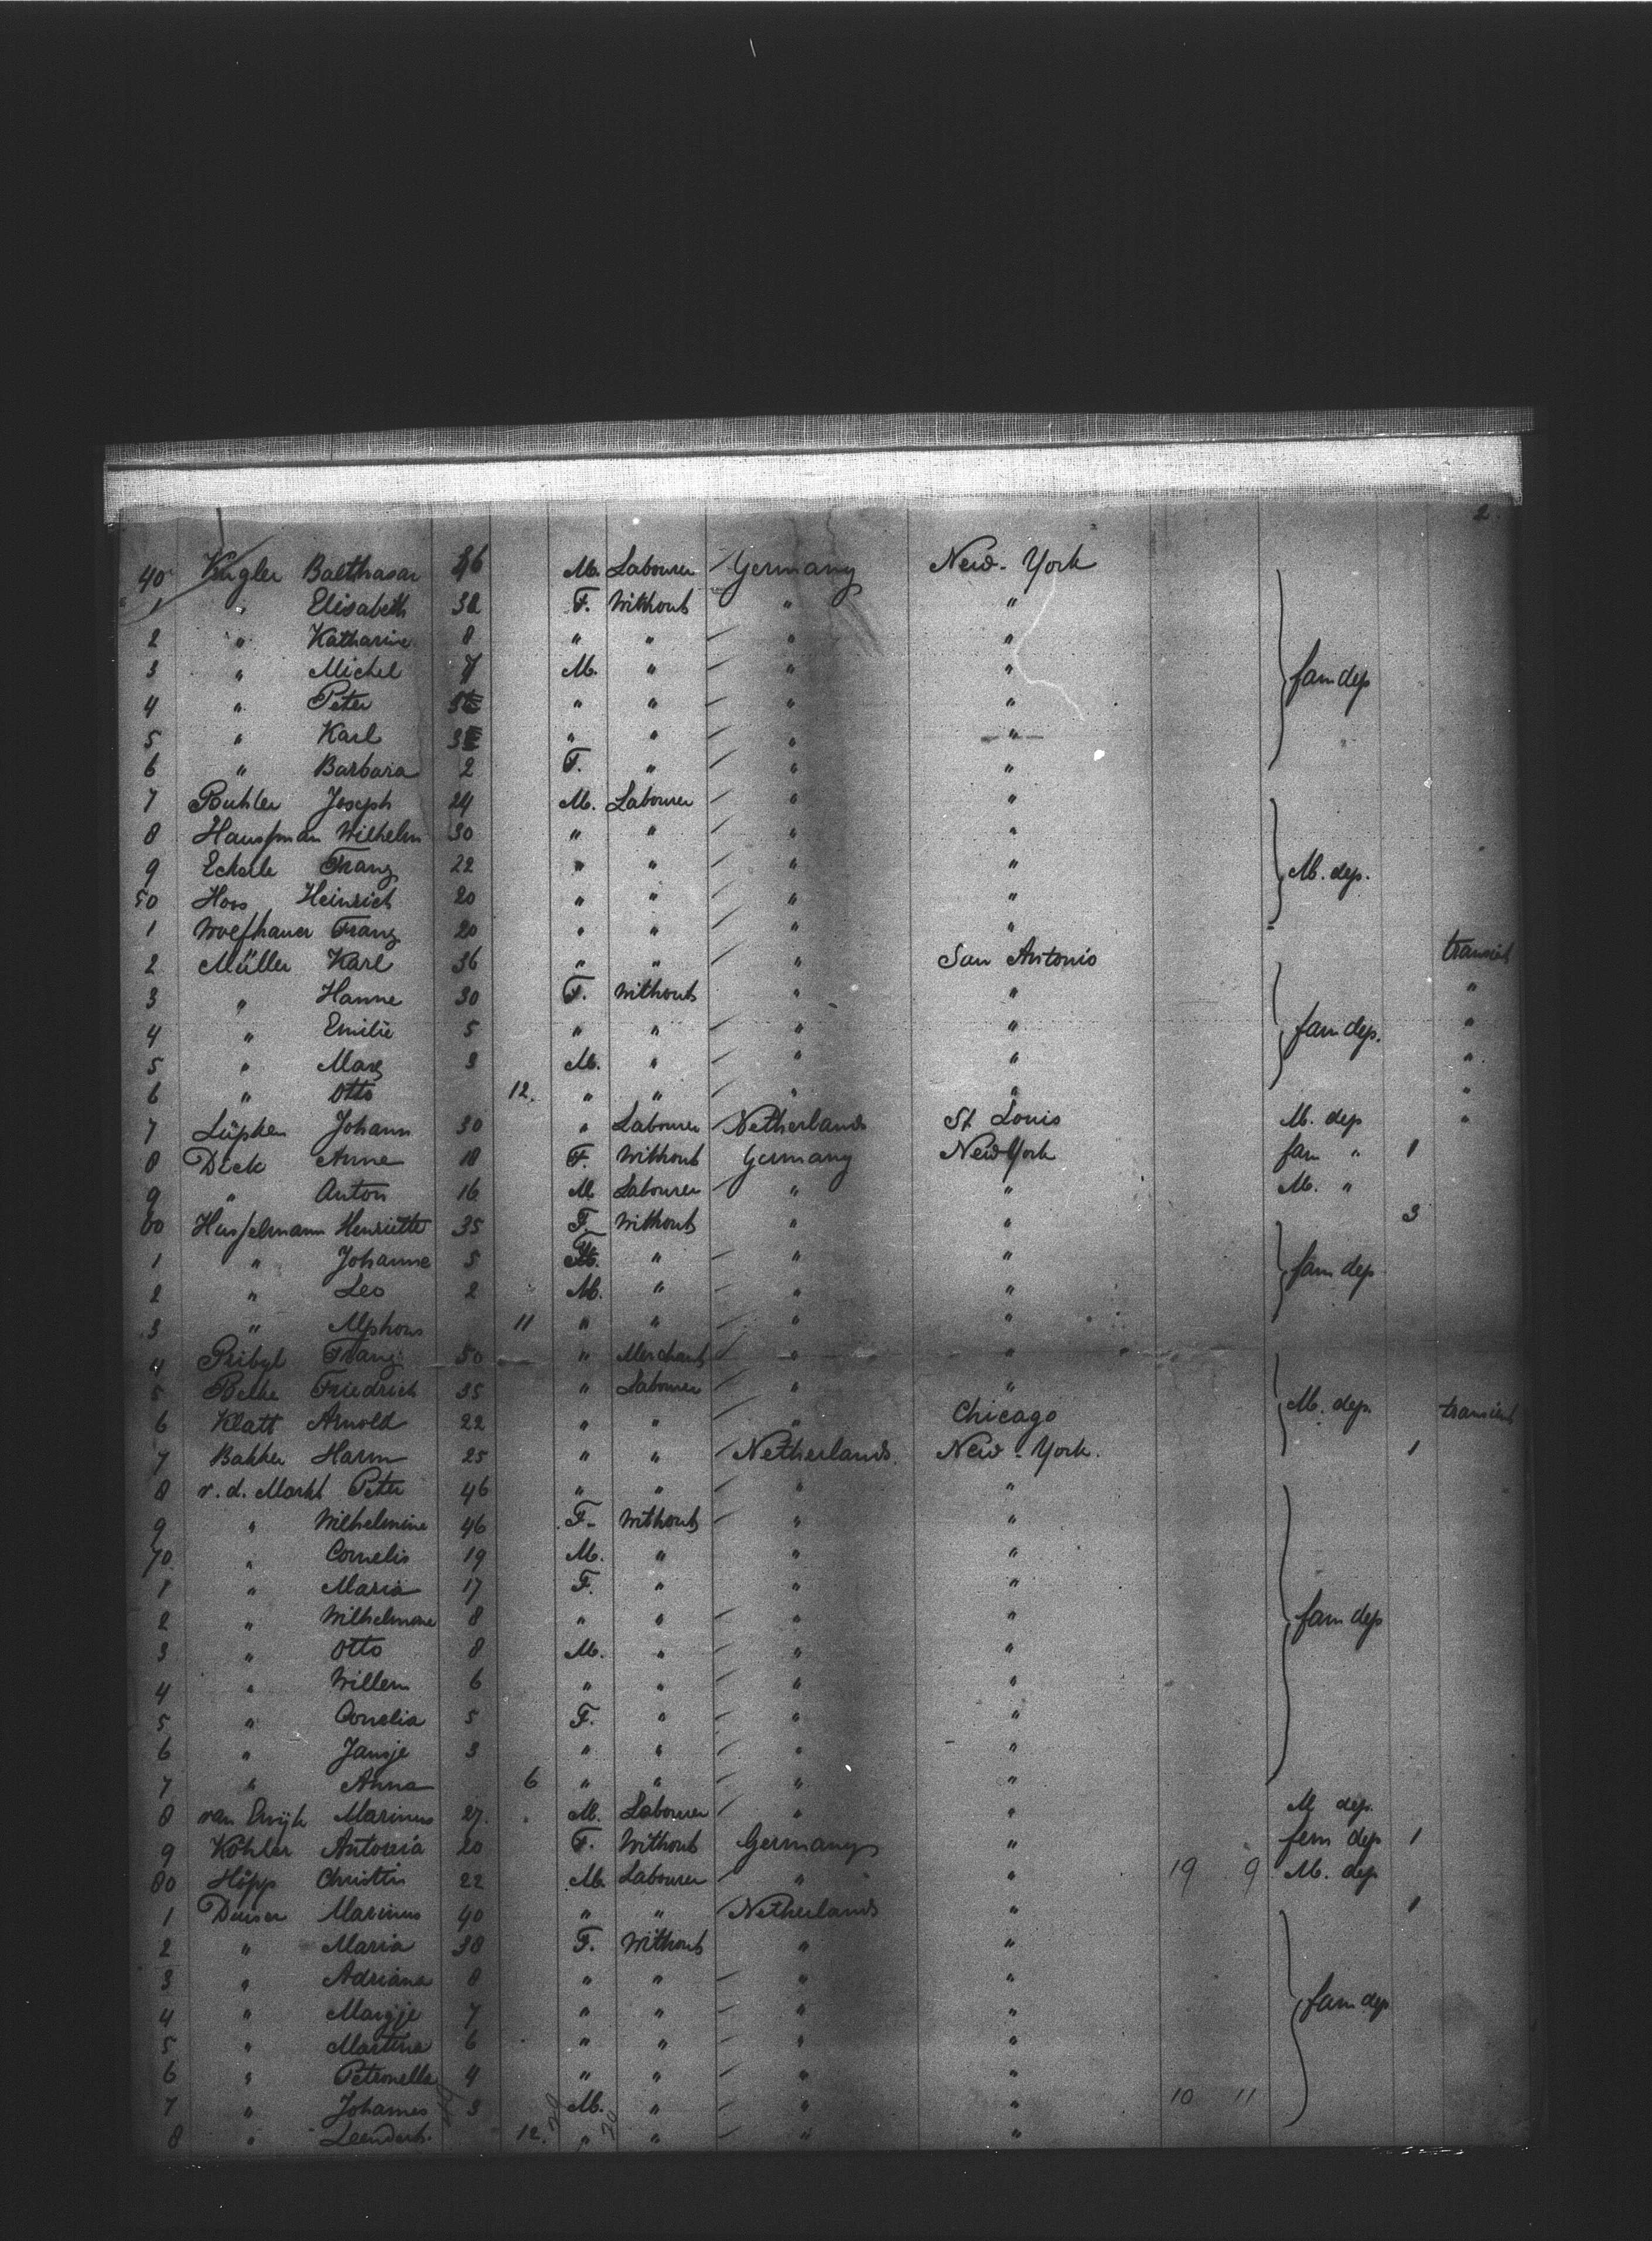 2.
40 Kugler Balthasar 36 M. Labourer Germany New-York
1 " Elisabeth 32 F. Without " "
2 " Katharine 8 " " " "
3 " Michel 7 M. " " " fam dep
4 " Peter " " " "
5 " Karl " " " "
6 " Barbara 2 F. " " "
7 Buhler Joseph 24 M. Labourer " "
8 Haussman Wilhelm 30 " " " "
9 Eckerle Franz 22 " " " " M. dep.
50 Hoss Heinrich 20 " " " "
1 Franz 20 " " " "
2 Müller Karl 36 " " " San Antonio transient
3 " Hanne 30 F. Without " " "
4 " Emilie 5 " " " " fam dep. "
5 " Marx 3 M. " " " "
6 " Otto 12. " " " " "
7 Lüpken Johann 30 " Labourer Netherlands St Louis M. dep "
8 Dick Anne 18 F. Without Germany New York fam " 1
9 " Anton 16 M Labourer " " M. "
60 Husselmann Henriette 35 F. Without " " 3
1 " Johanne 5 " " " fam dep
2 " Leo 2 M. " " "
3 " Alphons 11 " " " "
4 Pribyl Franz 50 " Merchant " "
5 Belke Friedrich 35 " Labourer " "
6 Klatt Arnold 22 " " " Chicago M. dep. transient
7 Bakker Harm 25 " " Netherlands. New-York. 1
8 v. d. Markt Peter 46 " " " "
9 " Wilhelmine 46 F. Without " "
70 " Cornelis 19 M. " " "
1 " Maria 17 F. " " "
2 " Wilhelmine 8 " " " " fam dep
3 " Otto 8 M. " " "
4 " Willem 6 " " " "
5 " Cornelia 5 F. " " "
6 " Jansje 3 " " " "
7 " Anna 6 " " " "
8 van Marinus 27. M. Labourer " " M dep.
9 Köhler Antonia 20 F. Without Germany " fem dep 1
80 Höpp Christin 22 M. Labourer " " 19 9 M. dep
1 Marinus 40 " " Netherlands " 1
2 " Maria 38 F. Without " "
3 " Adriana 8 " " " "
4 " Margje 7 " " " " fam dep
5 " Martina 6 " " " "
6 " Petronella 4 " " " "
7 " Johannes 3 M. " " " 10 11
8 " Leendert. 12. " " " "